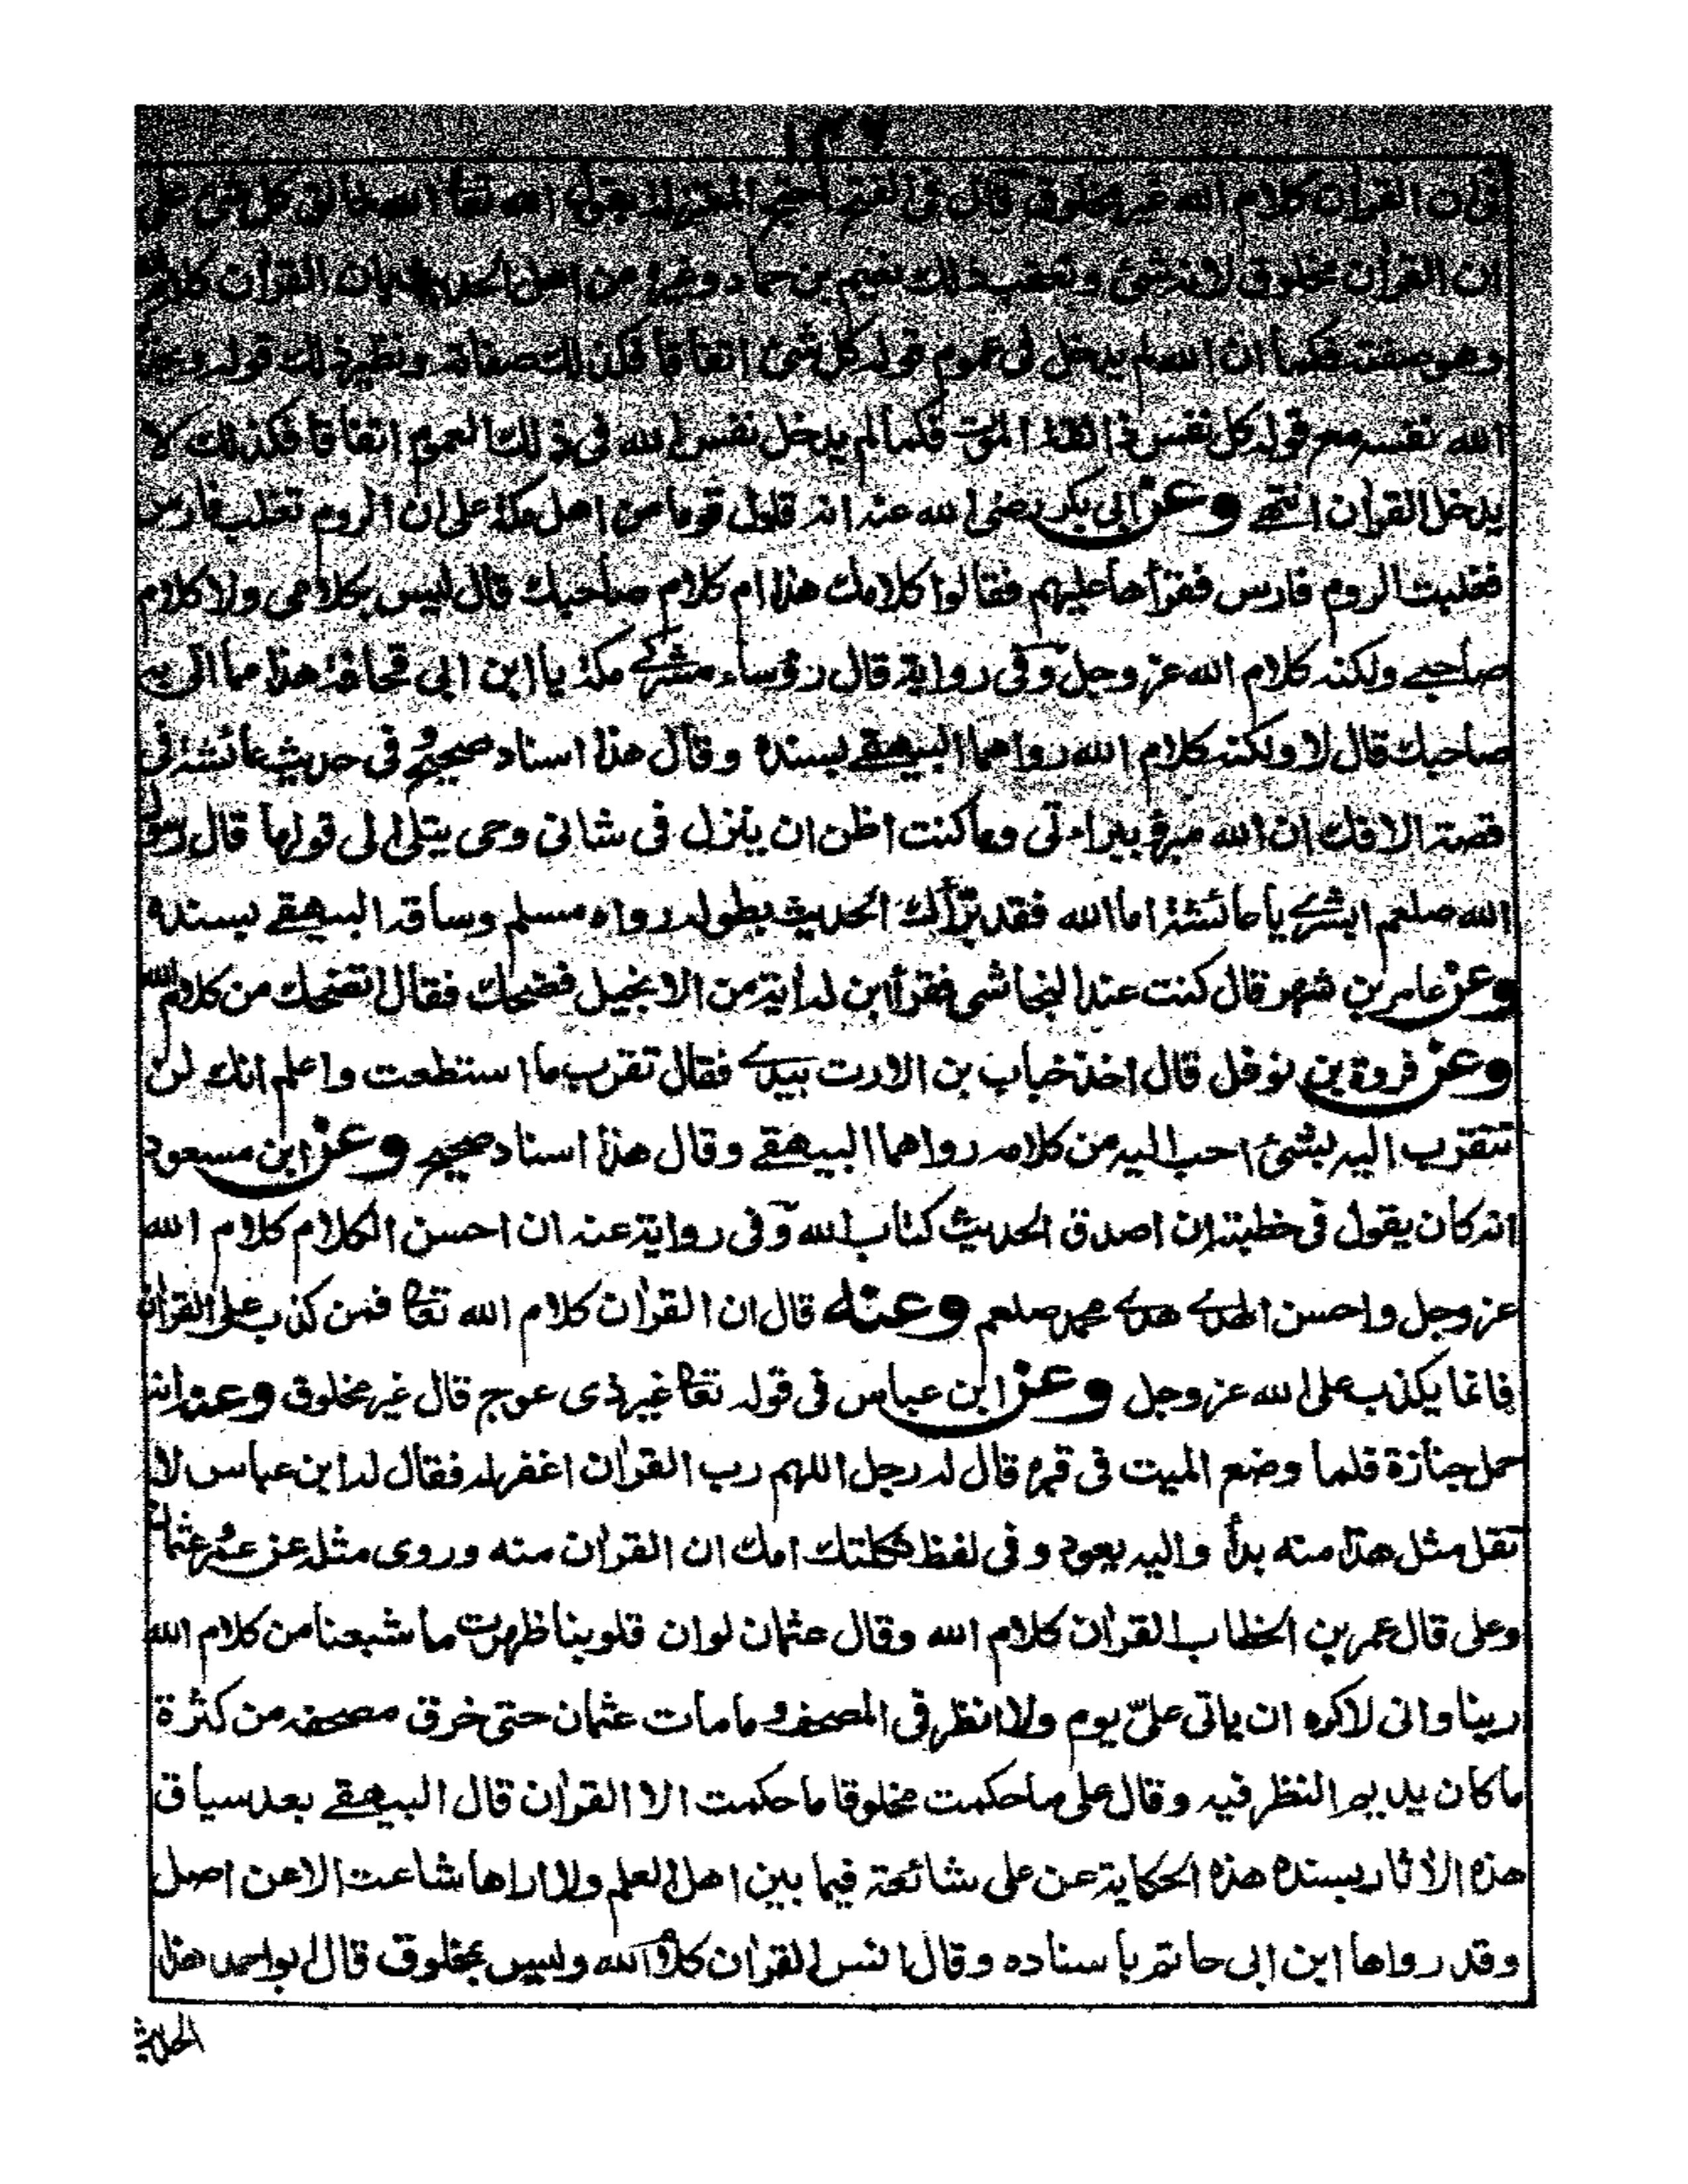 ١٣٦
فی ان القراٰن کلام الله غیر مخلوق قال فی الفتح احتج المعتزلة بقول الله تعالٰی الله خالق کل شیٔ علی
ان القراٰن مخلوق لانه شیٔ وتعقب ذلك نعیم بن حماد وغیره من اهل الحدیث بان القراٰن کلام الله
وهو صفته فکما ان الله لم یدخل فی عموم قوله کل شیٔ اتفاقا فکذلك صفاته ونظیر ذلك قوله ویحذرکم
الله نفسه مع قوله کل نفس ذائقة الموت فکما لم یدخل نفس الله فی ذلك العموم اتفاقا فکذلك لا
یدخل القراٰن انتهی وعن ابی بکر رضی الله عنه انه قاول قوما من اهل مکة علی ان الروم تغلب فارس
فغلبت الروم فارس فقرأها علیهم فقالوا کلامك هذا ام کلام صاحبك قال لیس بکلامی ولا کلام
صاحبی ولکنه کلام الله عز وجل وفی روایة قال رؤساء مشرکی مکة یا ابن ابی قحافة هذا مما اتی به
صاحبك قال لا ولکنه کلام الله رواهما البیهقی بسنده وقال هذا اسناد صحیح وفی حدیث عائشة فی
قصة الافك ان الله مبرئ ببراءتی وما کنت اظن ان ینزل فی شانی وحی یتلی الی قولها قال رسول
الله صلعم ابشری یا عائشة اما الله فقد برّأك الحدیث بطوله رواه مسلم وساقه البیهقی بسنده
وعن عامر بن شهر قال کنت عند النجاشی فقرأ ابن له اٰیة من الانجیل فضحکت فقال اتضحك من کلام الله
وعن فروة بن نوفل قال اخذ خباب بن الارت بیدی فقال تقرب ما استطعت واعلم انك لن
تتقرب الیه بشیٔ احب الیه من کلامه رواهما البیهقی وقال هذا اسناد صحیح وعن ابن مسعود
انه کان یقول فی خطبته ان اصدق الحدیث کتاب الله وفی روایة عنه ان احسن الکلام کلام الله
عز وجل واحسن الهدی هدی محمد صلعم وعنه قال ان القراٰن کلام الله تعالٰی فمن کذب علی القراٰن
فانما یکذب علی الله عز وجل وعن ابن عباس فی قوله تعالٰی غیر ذی عوج قال غیر مخلوق وعنه انه
حمل جنازة فلما وضع المیت فی قبره قال له رجل اللهم رب القراٰن اغفر له فقال له ابن عباس لا
تقل مثل هذا منه بدأ والیه یعود وفی لفظ ثکلتك امك ان القراٰن منه وروی مثله عن عمر وعثمان
وعلی قال عمر بن الخطاب القراٰن کلام الله وقال عثمان لو ان قلوبنا ظهرت ما شبعنا من کلام الله
ربنا وانی لاکره ان یاتی علیّ یوم ولا انظر فی المصحف وما مات عثمان حتی خرق مصحفه من کثرة
ما کان یدیم النظر فیه وقال علی ما حکمت مخلوقا ما حکمت الا القراٰن قال البیهقی بعد سیاق
هذه الاٰثار بسنده هذه الحکایة عن علی شائعة فیما بین اهل العلم ولا اراها شاعت الا عن اصل
وقد رواها ابن ابی حاتم باسناده وقال انس القراٰن کلام الله ولیس بمخلوق قال ابو احمد هذا
الحدیث